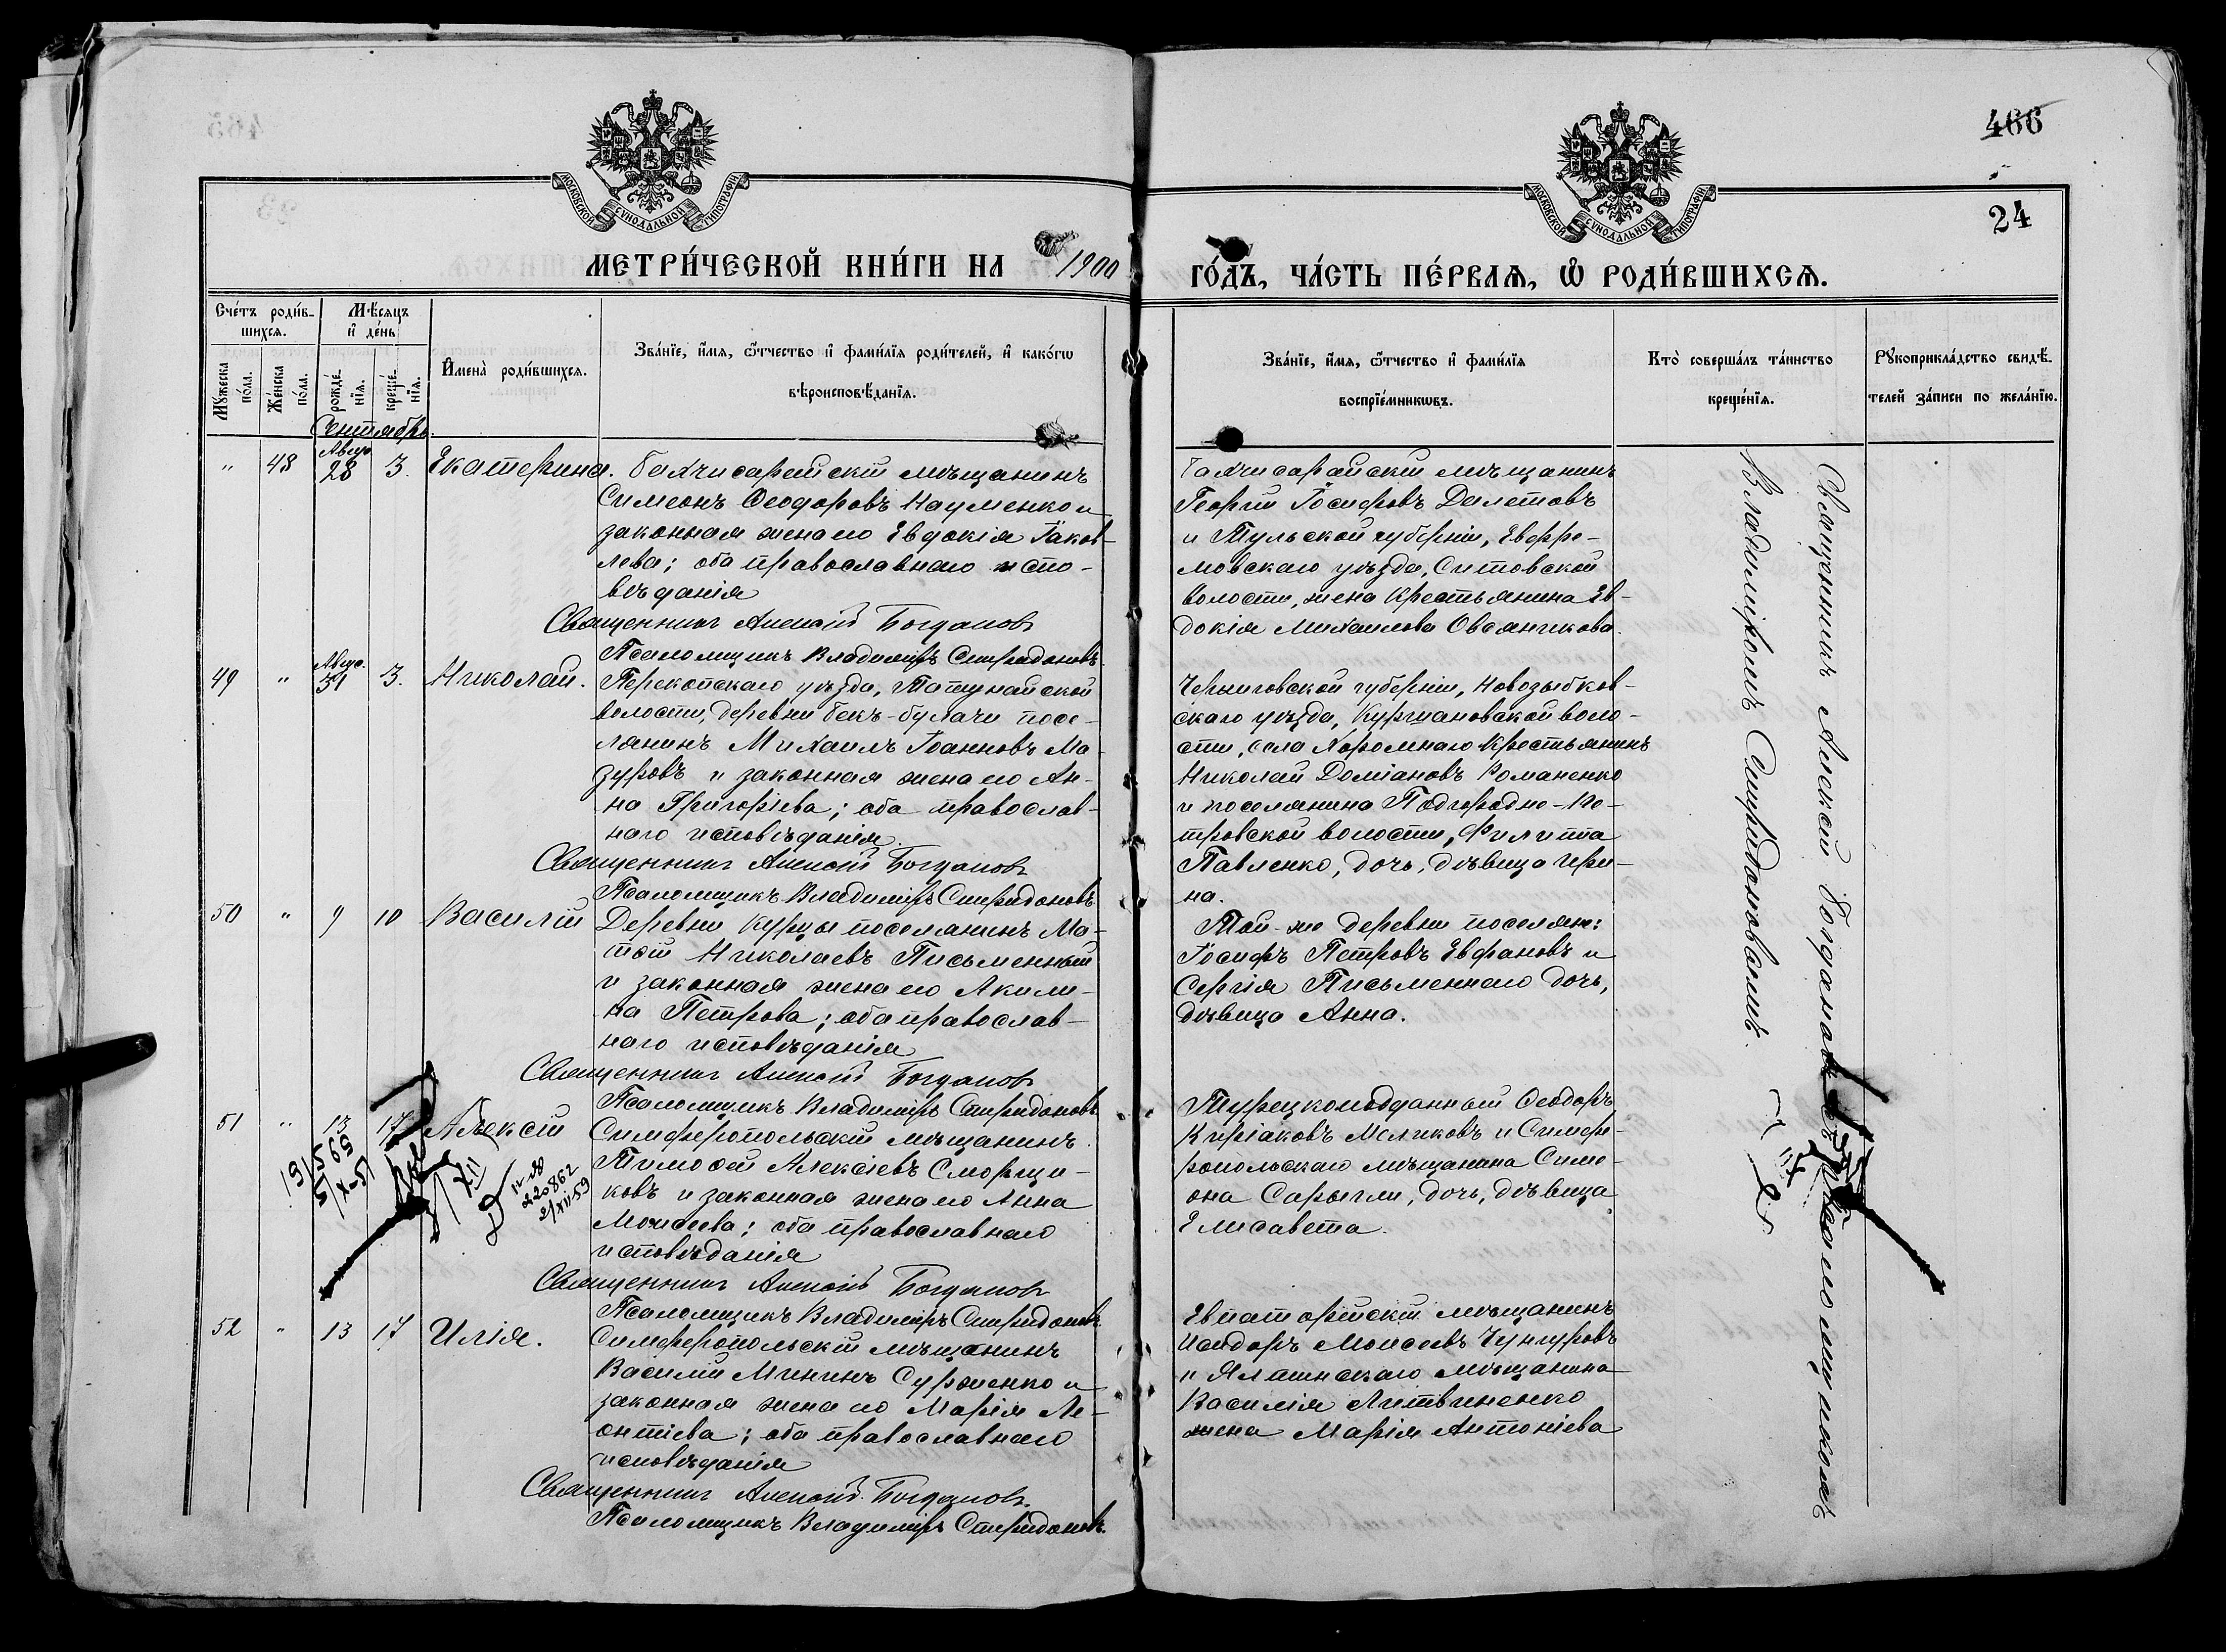 466
24
МОСКОВСКОЙ СУНОДАЛЬНОЙ ТИПОГРАФІИ
МОСКОВСКОЙ СУНОДАЛЬНОЙ ТИПОГРАФІИ
МЕТРИ́ЧЕСКОЙ КНИ́ГИ НА 1900
ГО́ДЪ, ЧА́СТЬ ПЕ́РВАѦ, Ѡ҆ РОДИ́ВШИХСѦ.
Сче́тъ роди́в-
шихсѧ.
Мѣ́сѧцъ
и҆ де́нь
Мꙋ́жеска по́ла.
Же́нска по́ла.
рожде́-
нїѧ.
креще́-
нїѧ.
И҆мена̀ роди́вшихсѧ.
Зва́нїе, и҆́мѧ, ѻ҆́тчество и҆ фами́лїѧ роди́телей, и҆ како́гѡ
вѣроисповѣ́данїѧ.
Зва́нїе, и҆́мѧ, ѻ҆́тчество и҆ фами́лїѧ
воспрїе́мникѡвъ.
Кто̀ соверша́лъ та́инство
креще́нїѧ.
Рꙋкоприкла́дство свидѣ́-
телей за́писи по жела́нїю.
Сентябрь.
" 48 Авгус 28 3. Екатерина.
Бахчисарайскій мѣщанинъ
Симеонъ Ѳеодоровъ Науменко и
законная жена его Евдокія Іаков-
лева; оба православнаго испо-
вѣданія
Священникъ Алексій Богдановъ
Псаломщикъ Владиміръ Спиридоновъ.
Бахчисарайскій мѣщанинъ
Георгій Іосифовъ Далетовъ
и Тульской губерніи, Ефре-
мовскаго уѣзда, Ситовской
волости, жена крестьянина Ев-
докія Михаилова Овсянникова.
49 " Авгус. 31 3. Николай.
Перекопскаго уѣзда,
волости, деревни Бекъ-Булачи посе-
лянинъ Михаилъ Іоанновъ Ма-
зуровъ и законная жена его Ан-
на Григоріева; оба православ-
наго исповѣданія.
Священникъ Алексій Богдановъ
Псаломщикъ Владиміръ Спиридоновъ
Черниговской губерніи, Новозыбков-
скаго уѣзда, Куршановской воло-
сти, села Хоромнаго крестьянинъ
Николай Доміановъ Романенко
и поселянина Подгородно-Пе-
тровской волости, Филиппа
Павленко, дочь, дѣвица Ири-
на.
50 " 9 10 Василій
Деревни Курцы поселянинъ Ма-
тѳій Николаевъ Письменный
и законная жена его Акили-
на Петрова; оба православ-
наго исповѣданія
Священникъ Алексій Богдановъ
Псаломщикъ Владиміръ Спиридоновъ
Той-же деревни поселяне:
Іосифъ Петровъ Евфановъ и
Сергія Письменнаго дочь,
дѣвица Анна.
51 " 13 17 Алексій
Симферопольскій мѣщанинъ
Тимоѳей Алексіевъ Сморщи-
ковъ и законная жена его Анна
Моисеева; оба православнаго
исповѣданія
Священникъ Алексій Богдановъ
Псаломщикъ Владиміръ Спиридоновъ
220862
2/XII 59
Турецкоподданный Ѳеодоръ
Киріаковъ Меликовъ и Симфе-
ропольскаго мѣщанина Симе-
она Сарыгли, дочь, дѣвица
Елисавета.
52 " 13 17 Илія.
Симферопольскій мѣщанинъ
Василій Мининъ Сурженко и
законная жена его Марія Ле-
онтіева; оба православнаго
исповѣданія
Священникъ Алексій Богдановъ.
Псаломщикъ Владиміръ Спиридоновъ.
Евпаторійскій мѣщанинъ
Исидоръ Моисеевъ Чунгуровъ
и Ялтинскаго мѣщанина
Василія Литвиненко
жена Марія Антоніева
Священникъ Алексій Богдановъ съ псаломщикомъ
Владиміромъ Спиридоновымъ.